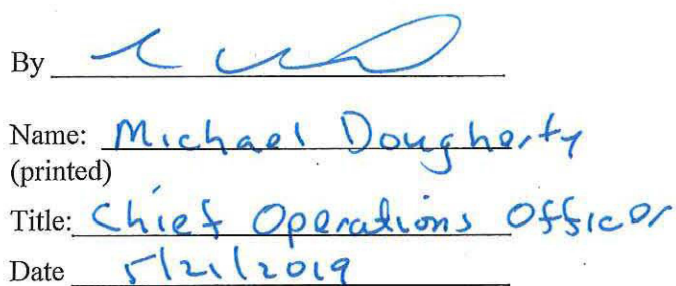 By
Name: Michael Dougherty
(printed)
Title: Chief Operations Officer
Date 5/21/2019